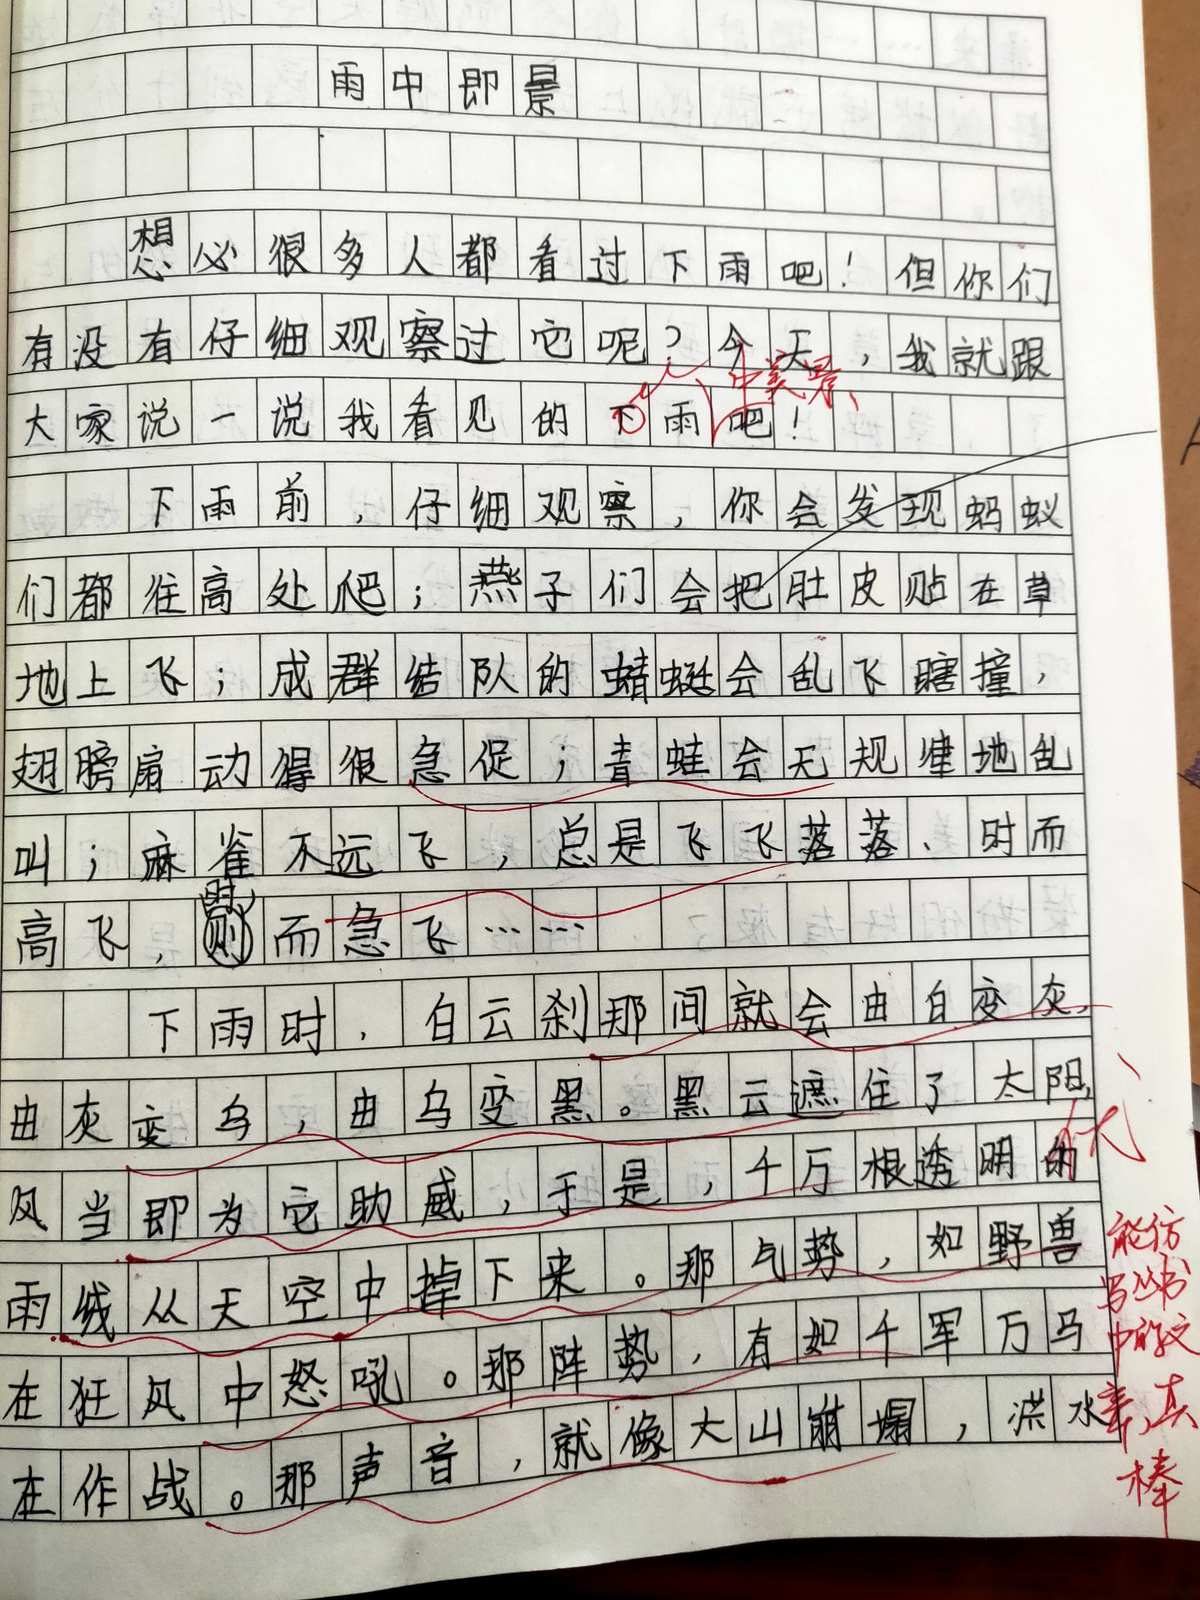 雨中即景
想必很多人都看过下雨吧！但你们
有没有仔细观察过它呢？今天，我就跟
中美景
大家说一说我看见的下雨吧！
下雨前，仔细观察，你会发现蚂蚁
们都往高处爬；燕子们会把肚皮贴在草
地上飞；成群结队的蜻蜓会乱飞瞎撞，
翅膀扇动得很急促；青蛙会无规律地乱
叫；麻雀不远飞，总是飞飞落落、时而
时
高飞，则而急飞……
下雨时，白云刹那间就会由白变灰，
由灰变乌，由乌变黑。黑云遮住了太阳，
风当即为它助威，于是，千万根透明的
雨线从天空中掉下来。那气势，如野兽
在狂风中怒吼。那阵势，有如千军万马
在作战。那声音，就像大山崩塌，洪水
能仿
写丛书
中的文
章，真
棒